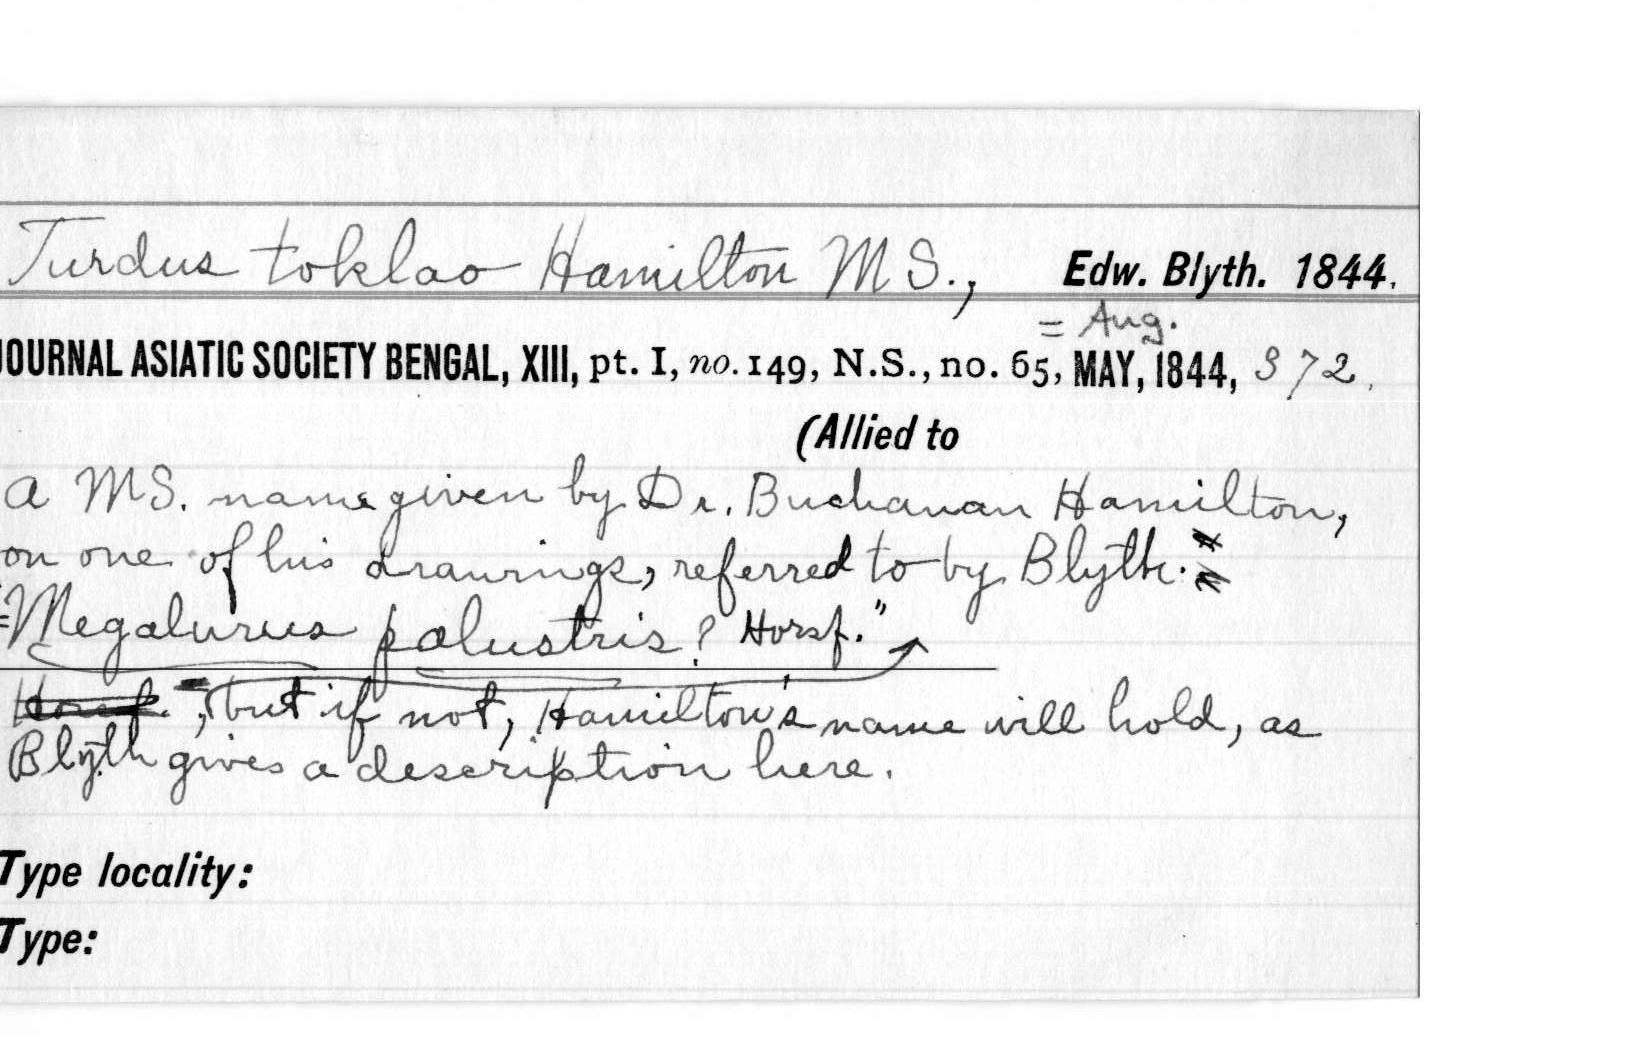 Turdus toklao Hamilton MS., Edw. Blyth. 1844.
= Aug.
JOURNAL ASIATIC SOCIETY BENGAL, XIII, pt. I, no. 149, N.S., no. 65, MAY, 1844, 372.
(Allied to
A MS. name given by Dr. Buchanan Hamilton,
on one of his drawings, referred to by Blyth.
"=Megalurus palustris? Horsf."
Horsf. , but if not, Hamilton's name will hold, as
Blyth gives a description here.
Type locality:
Type: